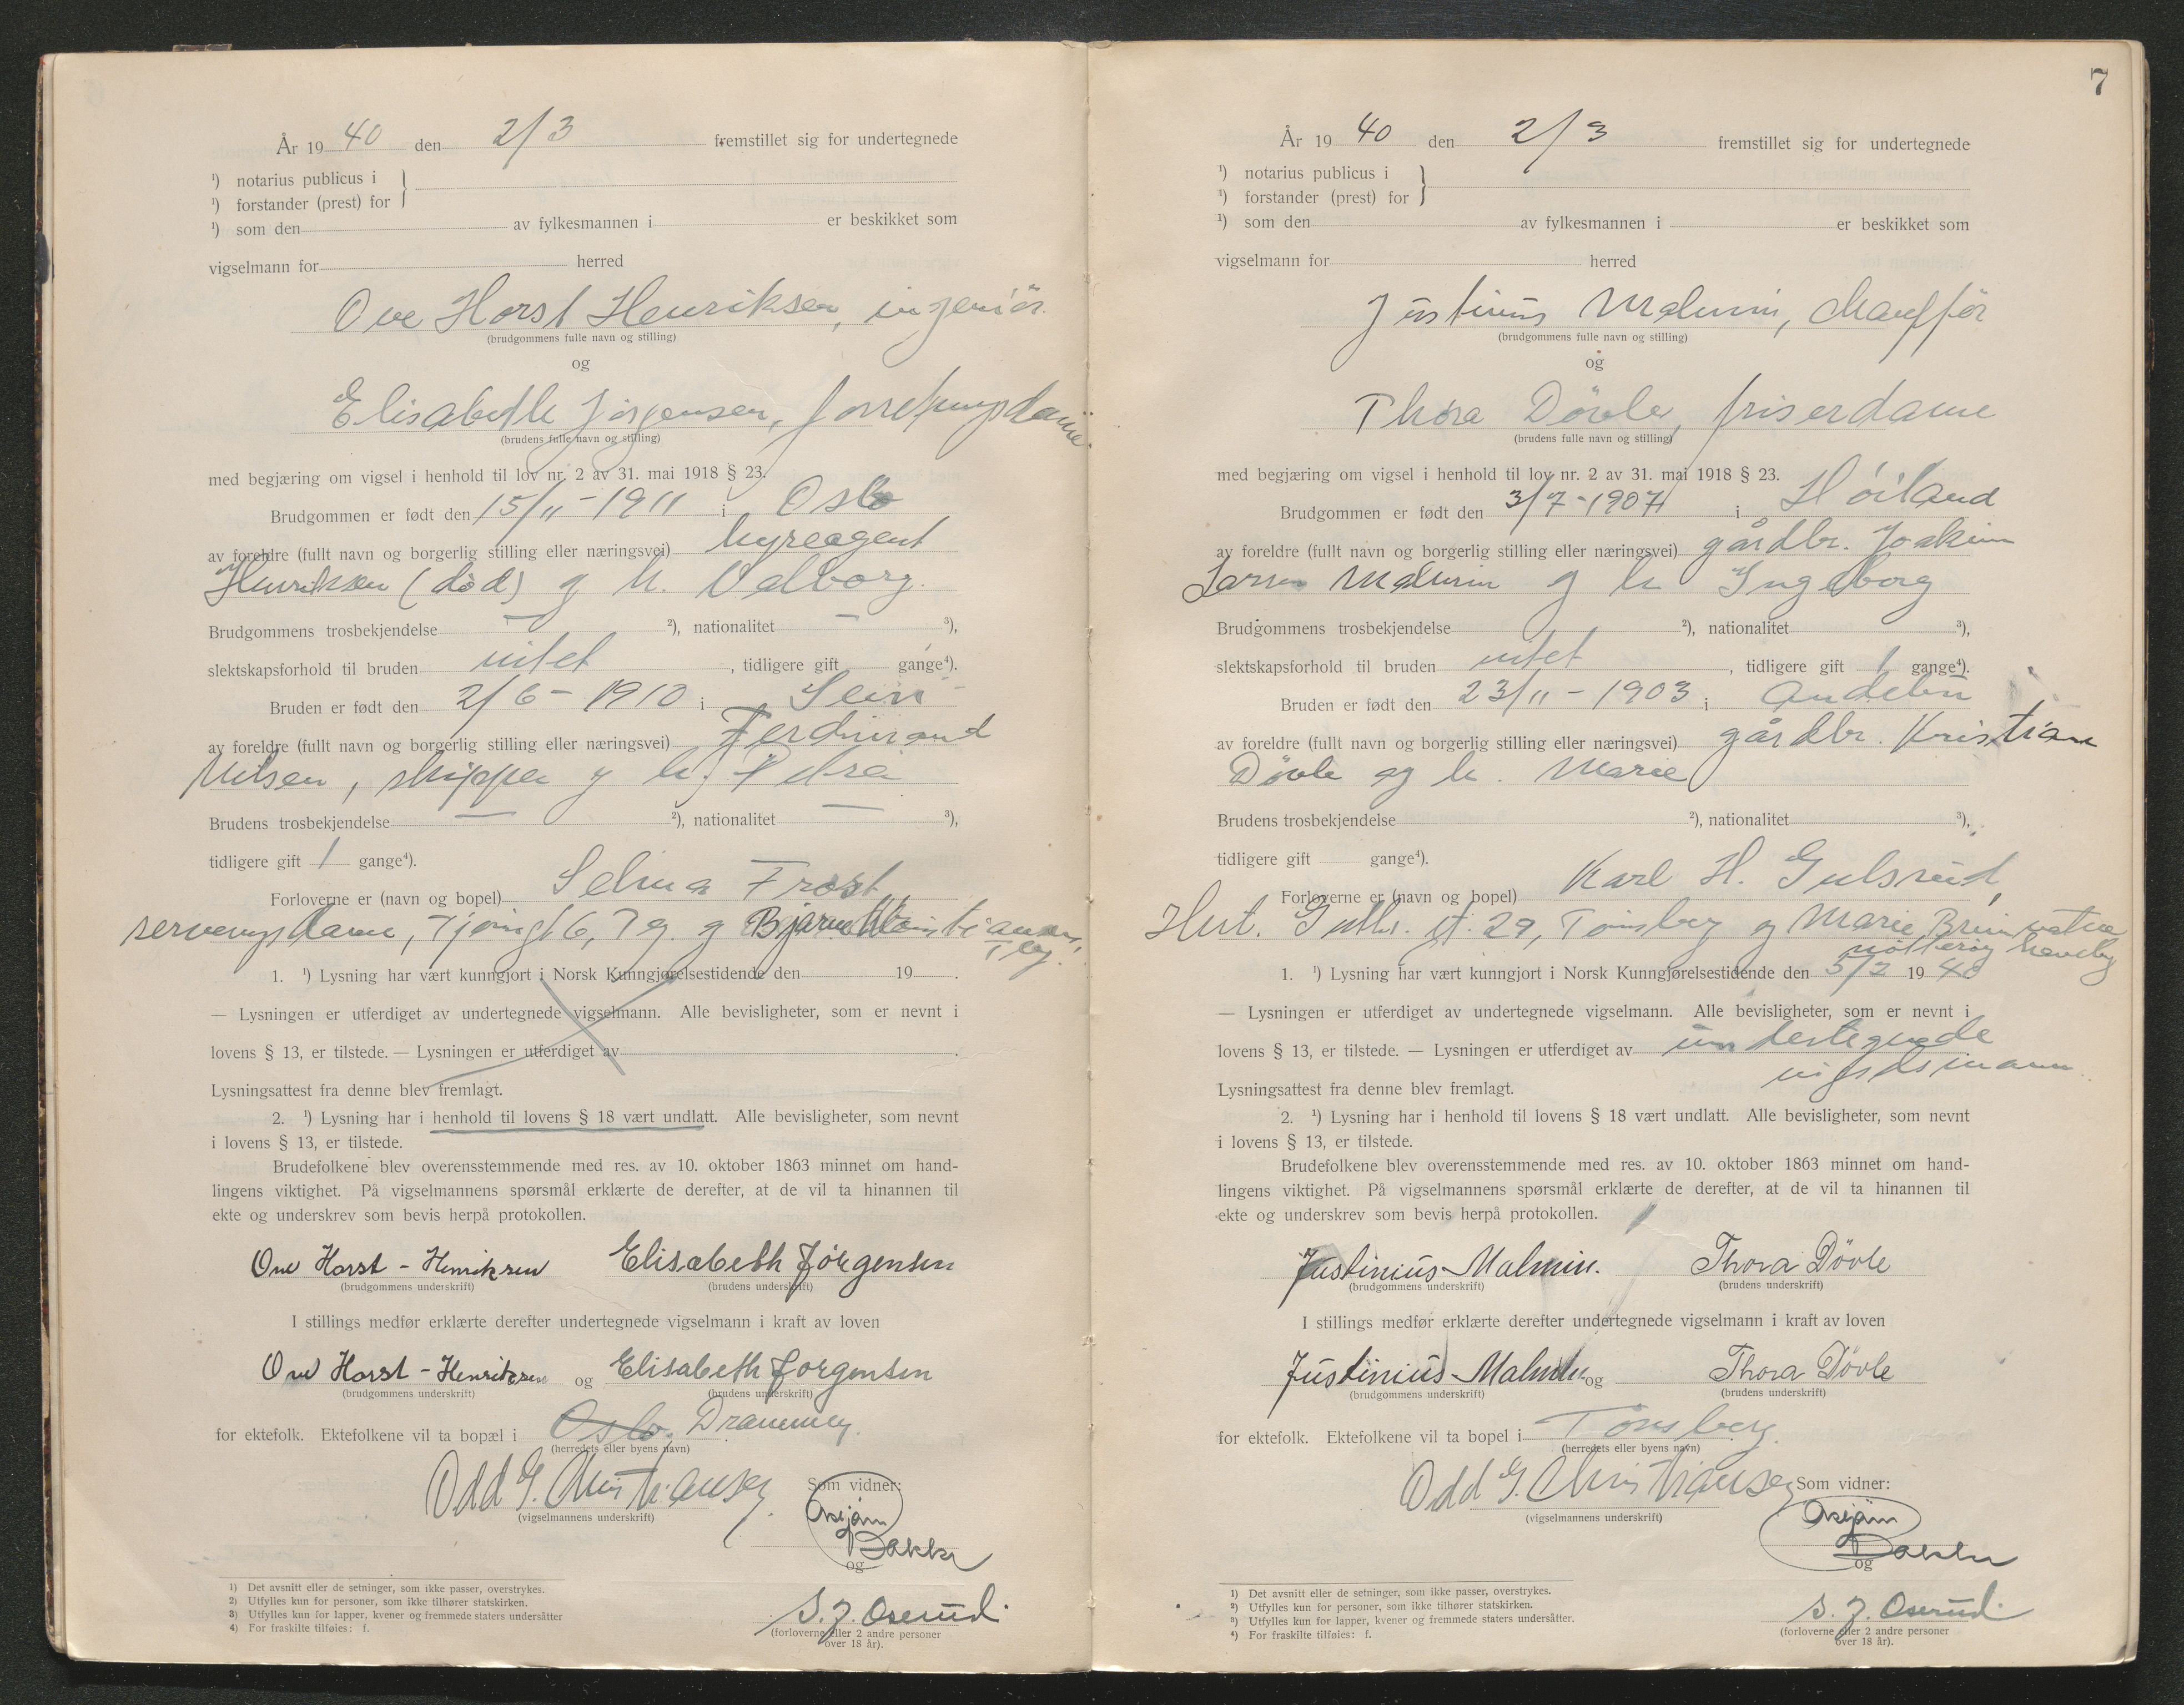 År 1940 den 2/3 fremstillet sig for undertegnede
¹) notarius publicus i
¹) forstander (prest) for
¹) som den av fylkesmannen i er beskikket som
vigselmann for herred
Ove Horst Henriksen, ingeniör.
(brudgommens fulle navn og stilling)
og
Elisabeth Jörgensen, forretningsdame.
(brudens fulle navn og stilling)
med begjæring om vigsel i henhold til lov nr. 2 av 31. mai 1918 § 23.
Brudgommen er født den 15/11 - 1911 i Oslo
av foreldre (fullt navn og borgerlig stilling eller næringsvei) hyreagent
Henriksen (död) og h. Valborg.
Brudgommens trosbekjendelse — ²), nationalitet — ³),
slektskapsforhold til bruden intet , tidligere gift gange⁴).
Bruden er født den 2/6 - 1910 i Sem
av foreldre (fullt navn og borgerlig stilling eller næringsvei) Ferdinand
Nilsen, skipper og h. Petra
Brudens trosbekjendelse — ²), nationalitet — ³),
tidligere gift 1 gange⁴).
Forloverne er (navn og bopel) Selma Frost,
serveringsdame, 6, Tg. og Bjarne
1. ¹) Lysning har vært kunngjort i Norsk Kunngjørelsestidende den 19 .
— Lysningen er utferdiget av undertegnede vigselmann. Alle bevisligheter, som er nevnt i
lovens § 13, er tilstede. — Lysningen er utferdiget av .
Lysningsattest fra denne blev fremlagt.
2. ¹) Lysning har i henhold til lovens § 18 vært undlatt. Alle bevisligheter, som nevnt
i lovens § 13, er tilstede.
Brudefolkene blev overensstemmende med res. av 10. oktober 1863 minnet om hand-
lingens viktighet. På vigselmannens spørsmål erklærte de derefter, at de vil ta hinannen til
ekte og underskrev som bevis herpå protokollen.
Ove Horst - Henriksen Elisabeth Jörgensen
(brudgommens underskrift) (brudens underskrift)
I stillings medfør erklærte derefter undertegnede vigselmann i kraft av loven
Ove Horst - Henriksen og Elisabeth Jorgensen
(brudgommens underskrift) (brudens underskrift)
for ektefolk. Ektefolkene vil ta bopæl i Oslo. Drammen.
(herredets eller byens navn)
Odd G. Christiansen Som vidner:
(vigselmannens underskrift)
Asbjörn
Bakke
og
S. J. Oserud.
(forloverne eller 2 andre personer
over 18 år).
1) Det avsnitt eller de setninger, som ikke passer, overstrykes.
2) Utfylles kun for personer, som ikke tilhører statskirken.
3) Utfylles kun for lapper, kvener og fremmede staters undersåtter
4) For fraskilte tilføies: f.
7
År 1940 den 2/3 fremstillet sig for undertegnede
¹) notarius publicus i
¹) forstander (prest) for
¹) som den av fylkesmannen i er beskikket som
vigselmann for herred
Justinius Malmin, chaufför
(brudgommens fulle navn og stilling)
og
Thora Dövle, friserdame
(brudens fulle navn og stilling)
med begjæring om vigsel i henhold til lov nr. 2 av 31. mai 1918 § 23.
Brudgommen er født den 3/7-1907 i Höiland
av foreldre (fullt navn og borgerlig stilling eller næringsvei) gårdbr. Joakim
Malmin og h Ingeborg
Brudgommens trosbekjendelse ²), nationalitet ³),
slektskapsforhold til bruden intet , tidligere gift 1 gange⁴).
Bruden er født den 23/11 - 1903 i Andebu
av foreldre (fullt navn og borgerlig stilling eller næringsvei) gårdbr. Kristian
Dövle og h. Marie
Brudens trosbekjendelse ²), nationalitet ³),
tidligere gift gange⁴).
Forloverne er (navn og bopel) Karl H. Gulsrud,
29, Tönsberg og Marie
1. ¹) Lysning har vært kunngjort i Norsk Kunngjørelsestidende den 5/2 1940
— Lysningen er utferdiget av undertegnede vigselmann. Alle bevisligheter, som er nevnt i
lovens § 13, er tilstede. — Lysningen er utferdiget av undertegnede
vigselsmann.
Lysningsattest fra denne blev fremlagt.
2. ¹) Lysning har i henhold til lovens § 18 vært undlatt. Alle bevisligheter, som nevnt
i lovens § 13, er tilstede.
Brudefolkene blev overensstemmende med res. av 10. oktober 1863 minnet om hand-
lingens viktighet. På vigselmannens spørsmål erklærte de derefter, at de vil ta hinannen til
ekte og underskrev som bevis herpå protokollen.
Justinius Malmin. Thora Dövle
(brudgommens underskrift) (brudens underskrift)
I stillings medfør erklærte derefter undertegnede vigselmann i kraft av loven
Justinius Malmin og Thora Dövle
(brudgommens underskrift) (brudens underskrift)
for ektefolk. Ektefolkene vil ta bopel i Tönsberg.
(herredets eller byens navn)
Odd G. Christiansen Som vidner:
(vigselmannens underskrift)
Asbjörn
Bakke
og
S. J. Oserud.
(forloverne eller 2 andre personer
over 18 år).
1) Det avsnitt eller de setninger, som ikke passer, overstrykes.
2) Utfylles kun for personer, som ikke tilhører statskirken.
3) Utfylles kun for lapper, kvener og fremmede staters undersåtter.
4) For fraskilte tilføies: f.